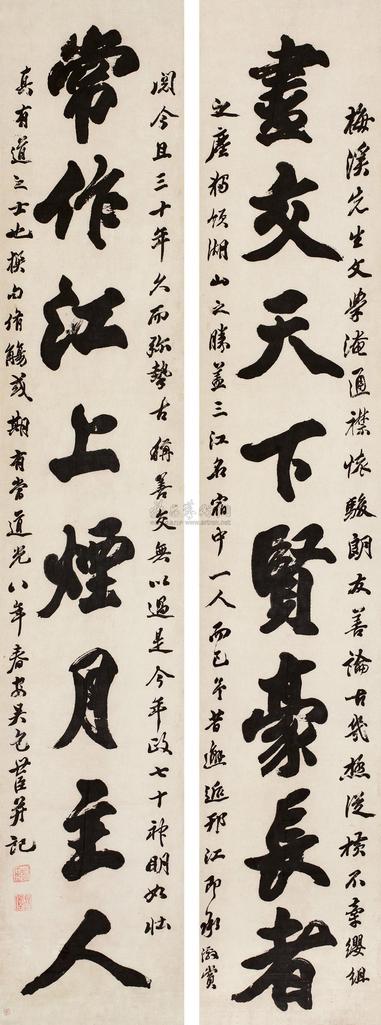 梅溪先生文學淹通襟懷駿朗友善論古幾極從橫不牽纓組
盡交天下賢豪長者
之塵獨領湖山之勝蓋三江名宿中一人而已余昔邂逅邗江即承激賞
閱今且三十年久而弥摯古稱善交無以過是今年政七十神明如壯
常作江上煙月主人
真有道之士也撰句侑觴或期有當道光八年春安吳包世臣并記